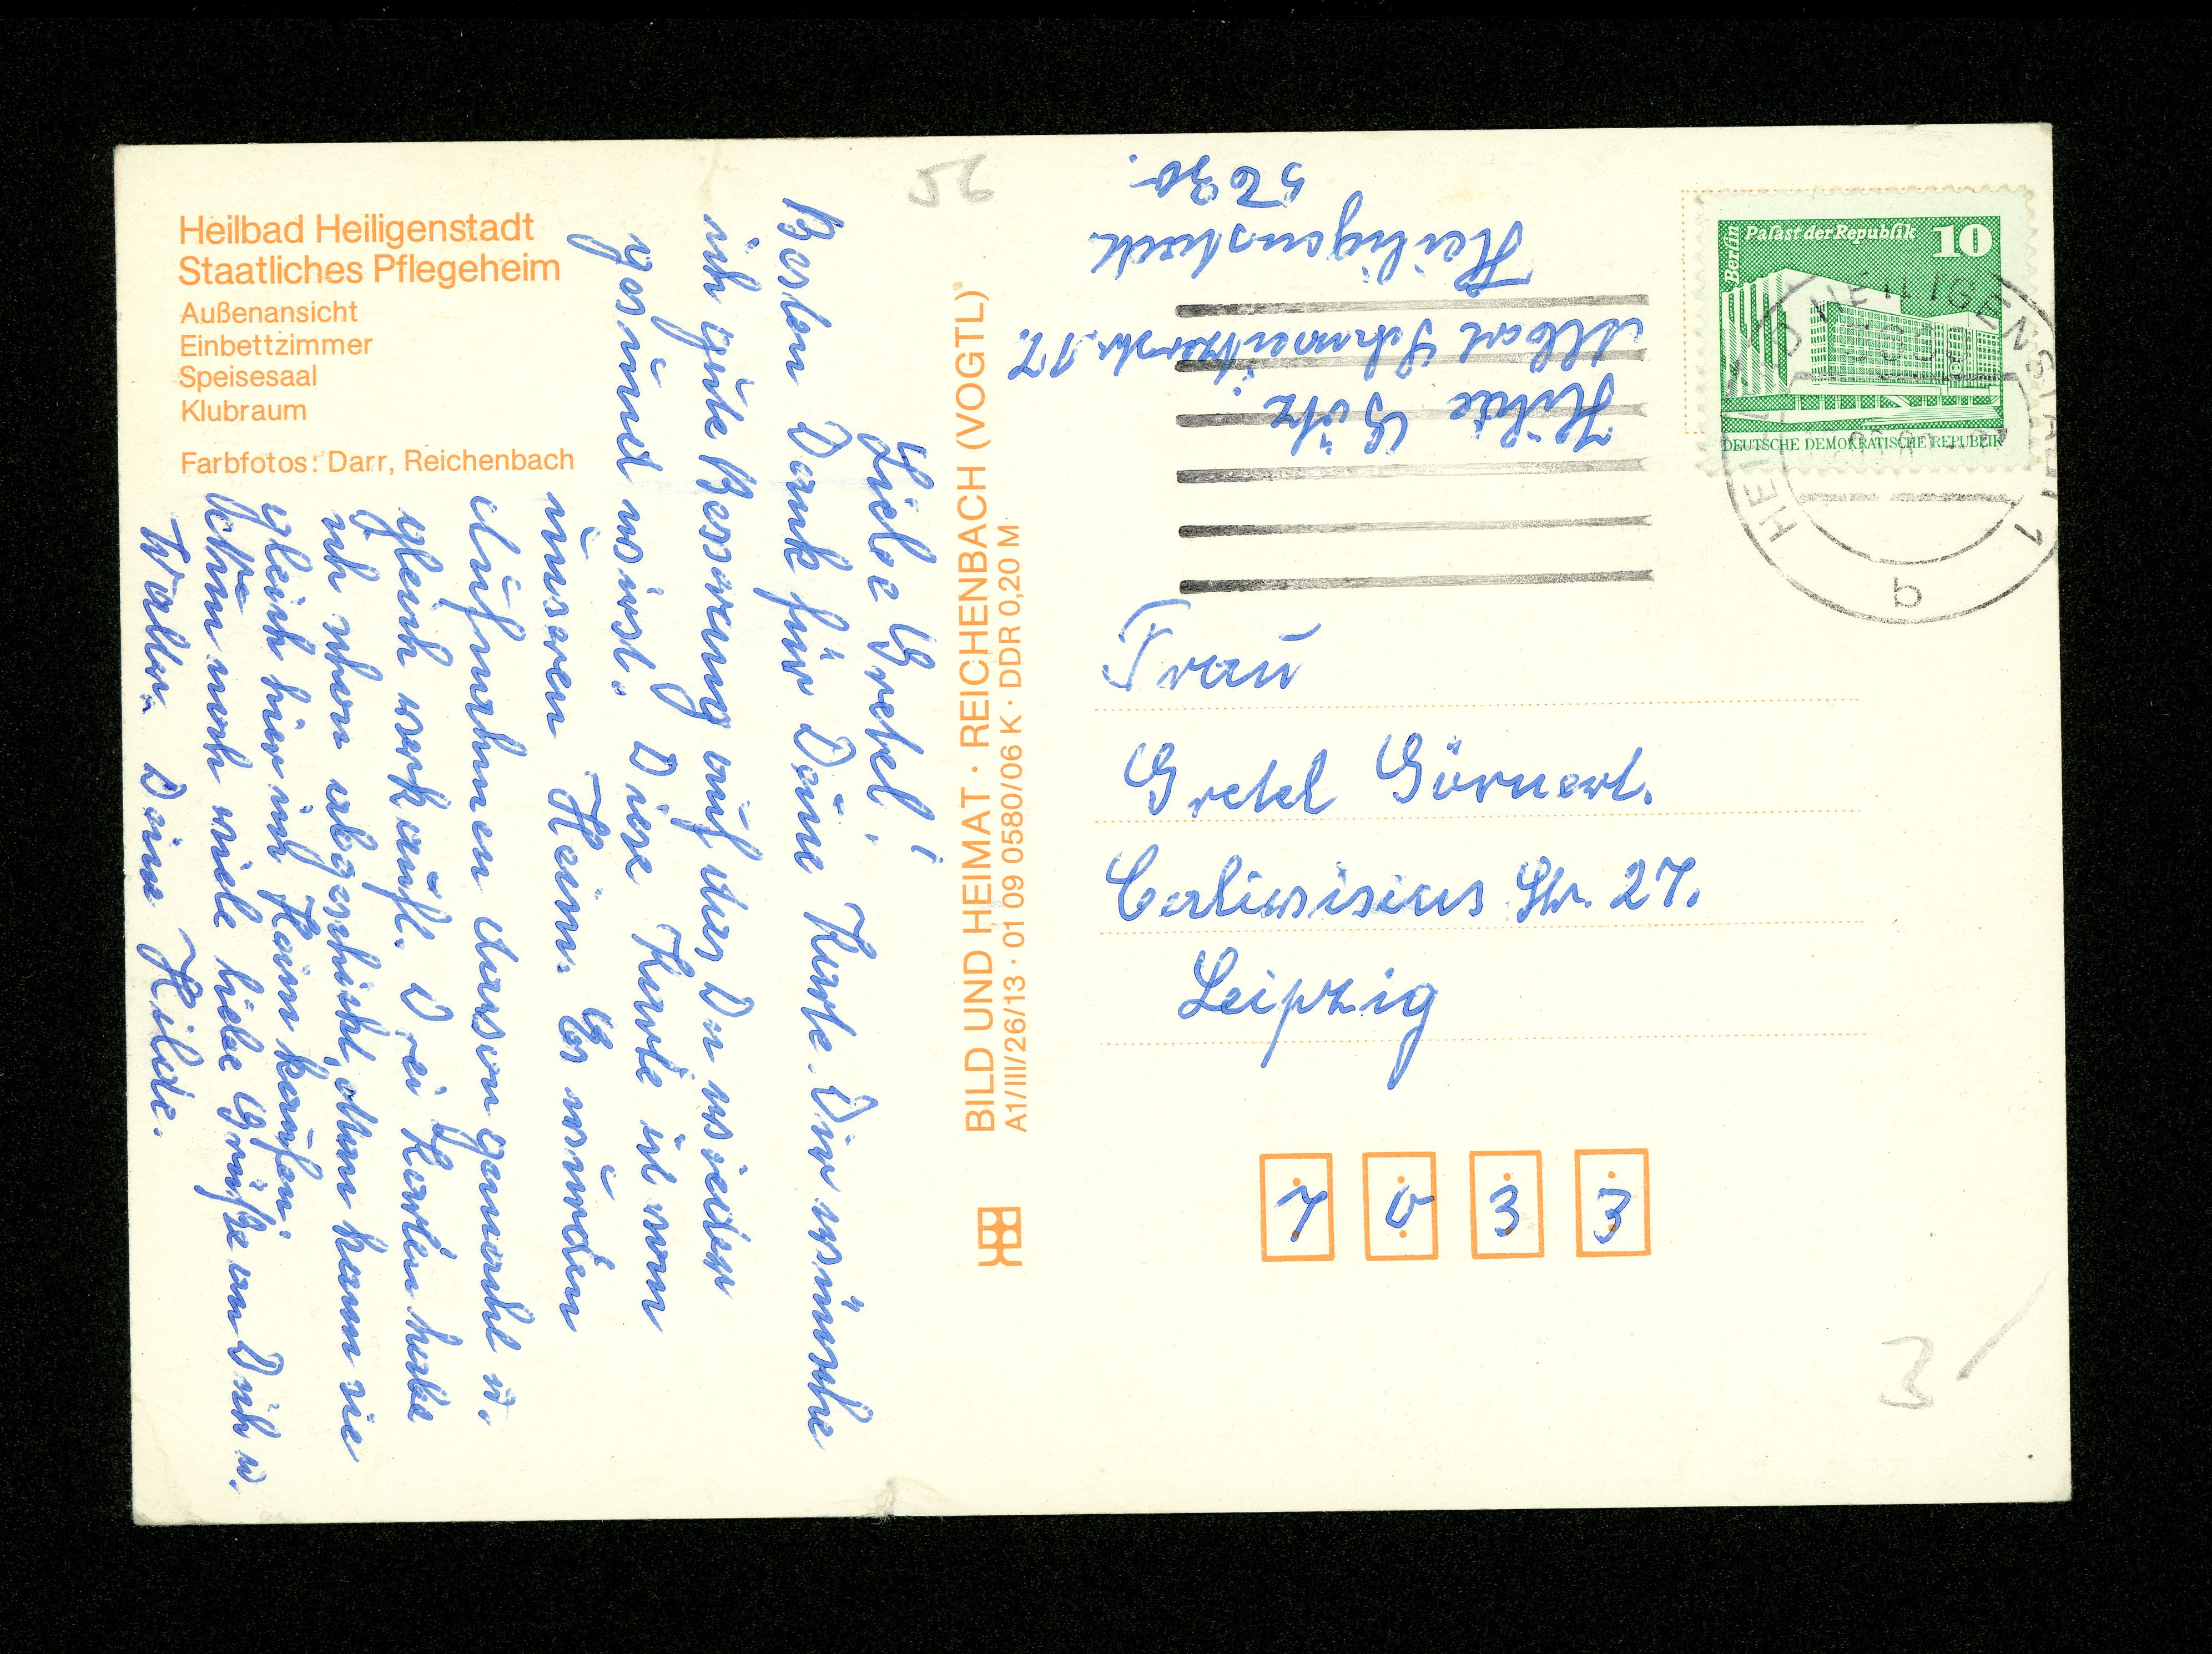 Heilbad Heiligenstadt
Staatliches Pflegeheim
Außenansicht
Einbettzimmer
Speisesaal
Klubraum
Farbfotos: Darr, Reichenbach
Liebe Gretel!
Besten Dank für Deine Karte. Dir wünsche
ich gute Besserung auf das Du wieder
gesund wirst. Diese Karte ist von
unseren Heim. Es wurden
Aufnahmen davon gemacht u.
gleich verkauft. Drei Karten habe
ich schon abgeschickt, man kann sie
gleich hier im Heim kaufen.
noch viele liebe Grüße an Dich u.
Walter Deine Hilde.
BILD UND HEIMAT · REICHENBACH (VOGTL)
A1/III/26/13 · 01 09 0580/06 K · DDR 0,20 M
56
Hilde Götz.
Albert Schweitzerstr. 17.
Heiligenstadt
5630.
Berlin
Palast der Republik
10
DEUTSCHE DEMOKRATISCHE REPUBLIK
HEILBAD HEILIGENSTADT 1
5630
b
Frau
Gretel Görnert.
Str. 27.
Leipzig
7033
3